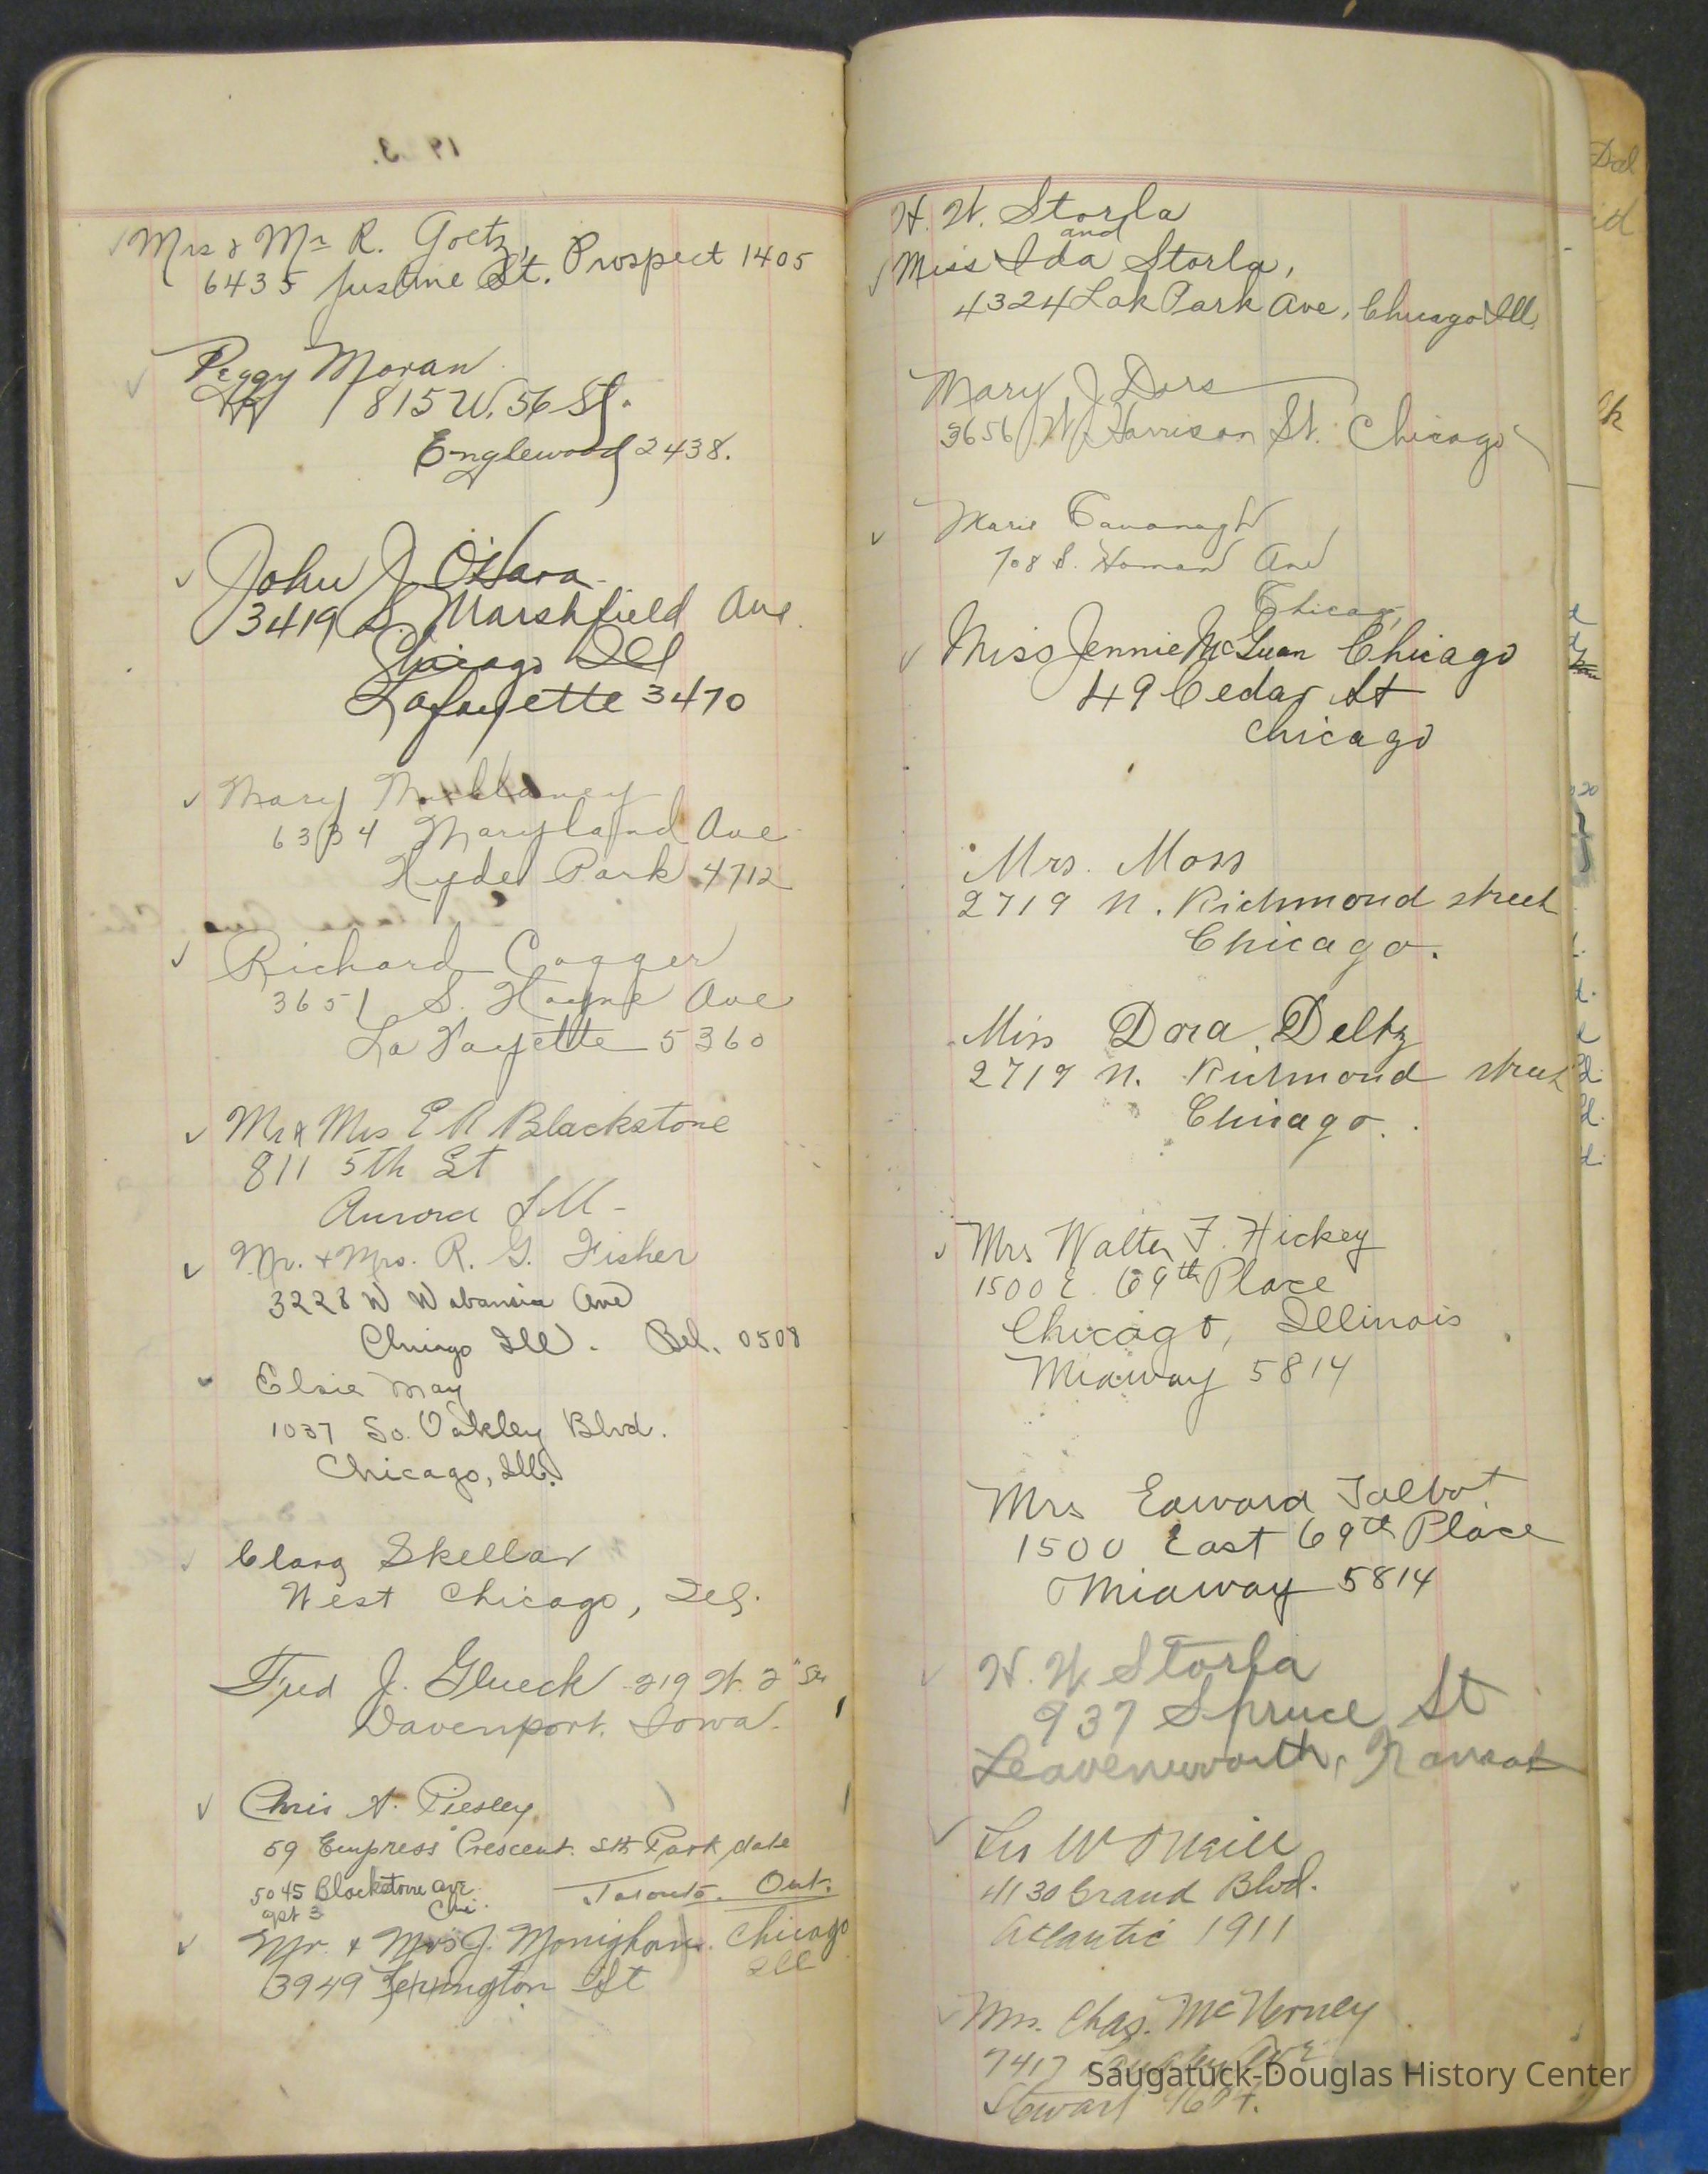 Mrs & Mr R. Goetz,
6435 Justine St. Prospect 1405
Peggy Moran
815 W. 56 St.
Englewood 2438.
John J. O'Hara
3419 S. Marshfield Ave.
Chicago Ill
Lafayette 3470
Mary
6334 Maryland Ave
Hyde Park 4712
Richard Cagger
3651 S. Hoyne Ave
La Fayette 5360
Mr & Mrs E R Blackstone
811 5th St
Aurora Ill -
Mr. + Mrs. R. G. Fisher
3228 W Wabansia Ave
Chicago Ill. Bel. 0508
Elsie May
1037 So. Oakley Blvd.
Chicago, Ill.
Clara Skellar
West Chicago, Ill.
Fred J. Glueck 219 W. 2" St
Davenport. Iowa.
Chris A. Piesley
59 Empress Crescent. Sth Parkdale
5045 Blackstone ave. Toronto. Ont.
apt 3 Chi.
Mr. + Mrs J. Monighan. Chicago
3949 Lexington St Ill
H. W. Storla
and
Miss Ida Storla,
4324 Lak Park Ave, Chicago Ill.
Mary J Dors
3656 W Harrison St. Chicago
Marie Cavanagh
708 S. Homan Ave
Chicago
Miss Jennie McGuan Chicago
49 Cedar St
Chicago
Mrs. Moss
2719 N. Richmond street
Chicago.
Miss Dora Deltz
2719 N. Richmond street
Chicago.
Mrs Walter F. Hickey
1500 E. 69th Place
Chicago, Illinois
Midway 5814
Mrs Edward Talbot
1500 East 69th Place
Midway 5814
H. W. Storla
937 Spruce St
Leavenworth, Kansas
W O'Neill
4130 Grand Blvd.
Atlantic 1911
Mrs. Chas. McNerney
7417 Ave
Stewart
Saugatuck-Douglas History Center